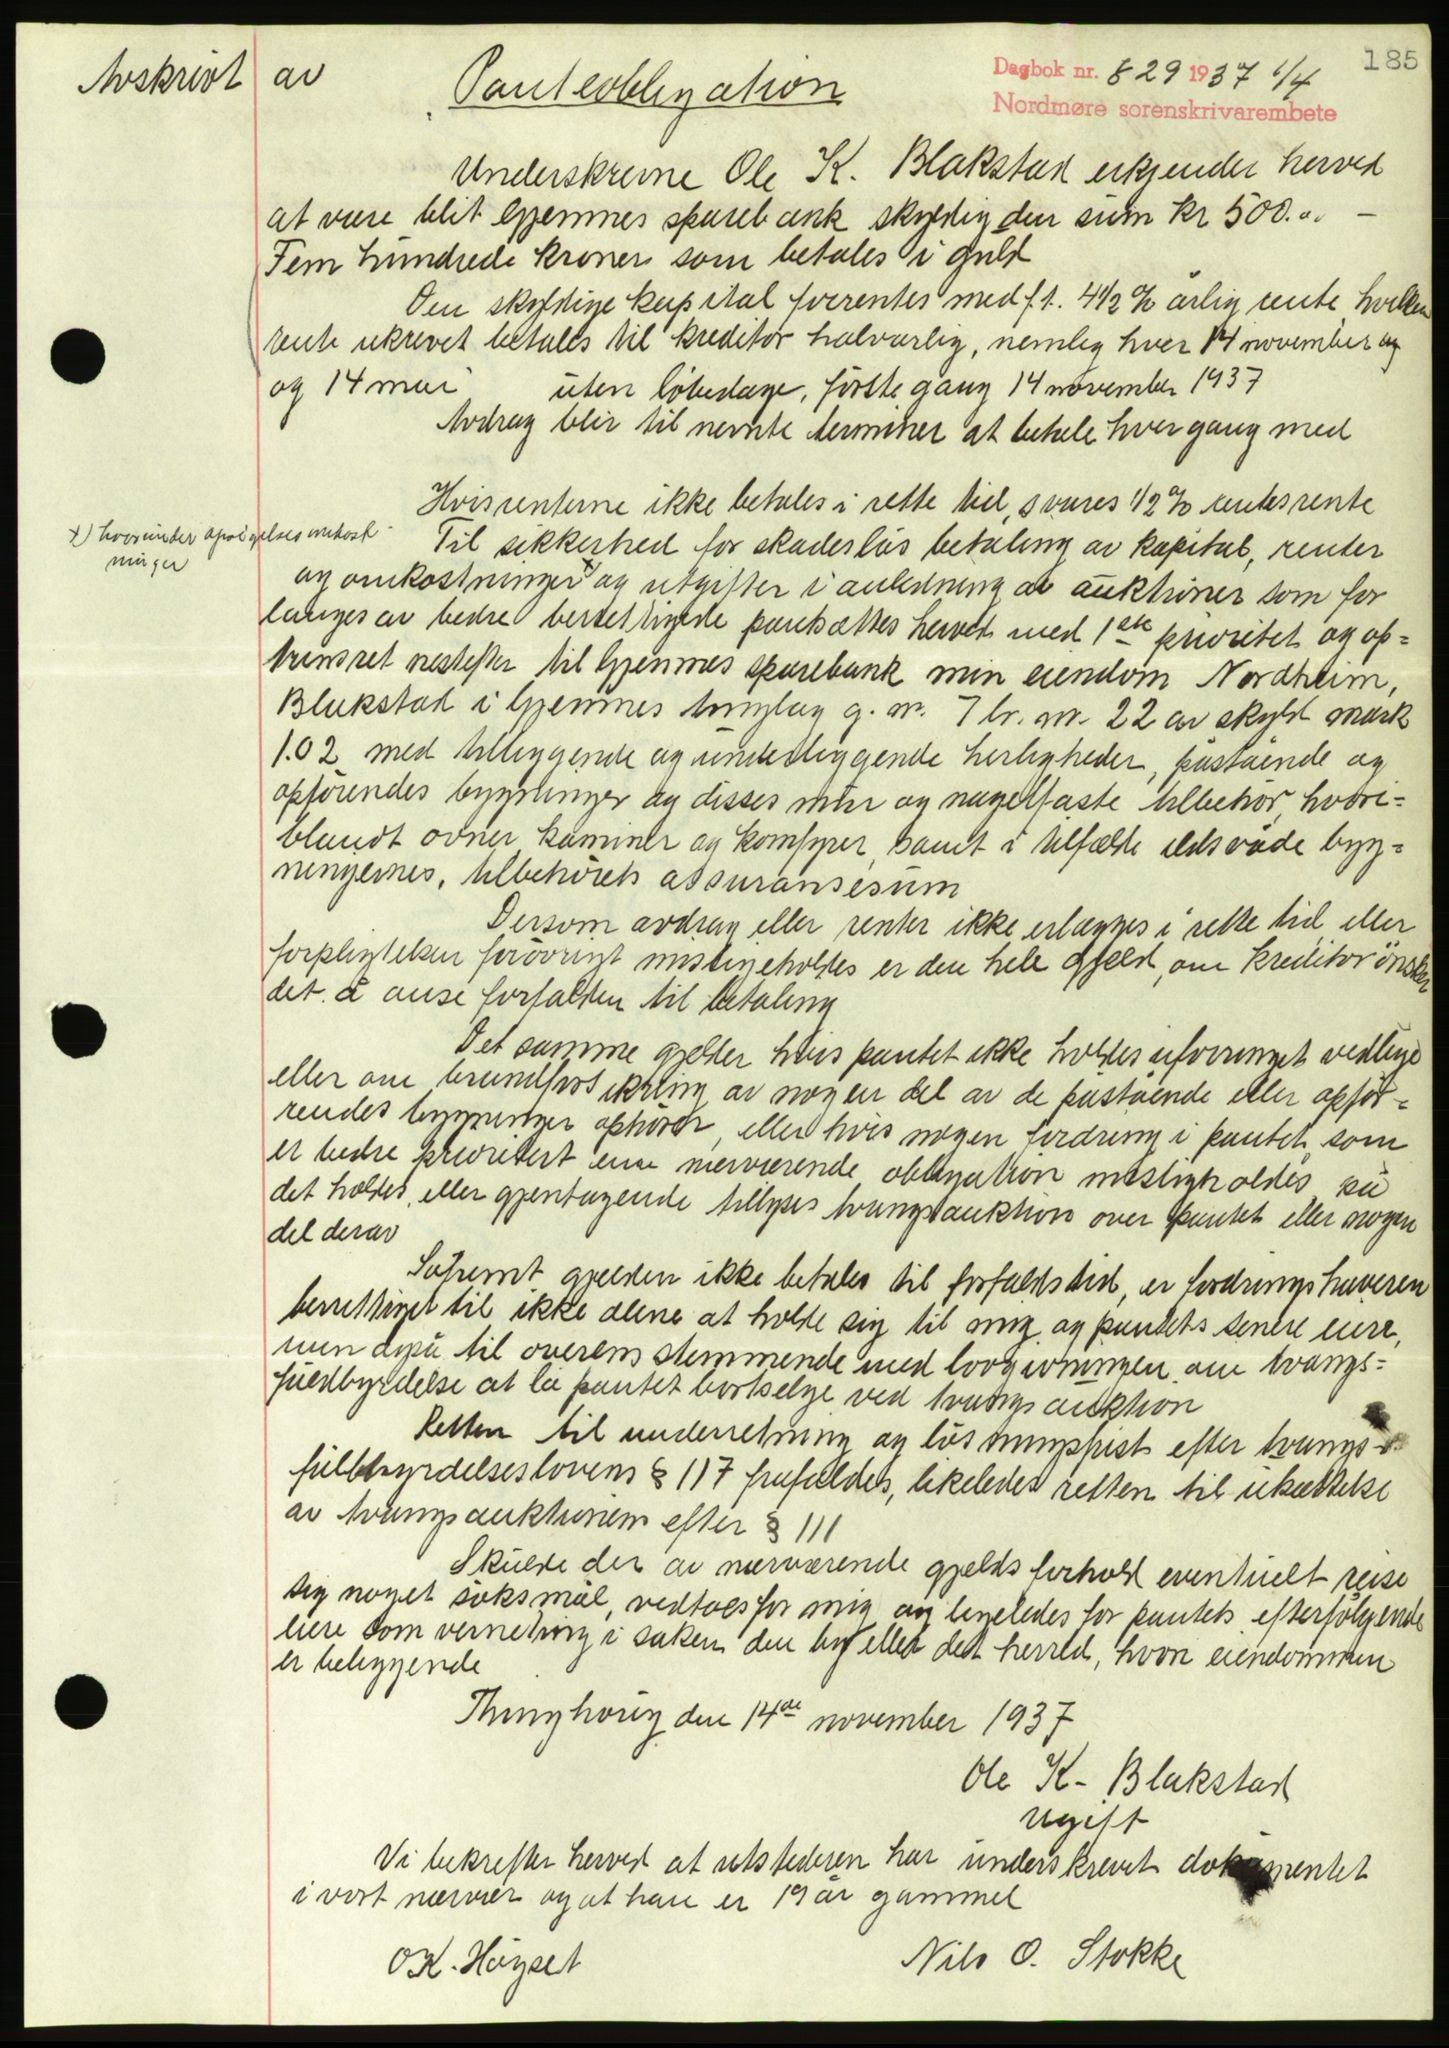 185
Avskrivt av Panteobligation
Dagbok nr. 829 1937 1/4
Nordmøre sorenskrivarembete
Underskrevne Ole K. Blakstad erkjender herved
at være blit Gjemnes sparebank skyldig den sum kr 500.00 –
Fem hundrede kroner som betales i guld
Den skyldige kapital forrentes med f.t. 4 1/2 % årlig rente, hvilken
rente ukrevet betales til kreditor halvårlig, nemlig hver 14 november og
og 14 mai uten løbedage, første gang 14 november 1937
Avdrag blir til nevnte terminer at betale hver gang med
Hvis renterne ikke betales i rette tid, svares 1/2 % rentesrente
x) hvorunder opsigelsesomkost-
ninger
Til sikkerhed for skadesløs betaling av kapital, renter
og omkostninger x) og utgifter i anledning av auktioner som for
langes av bedre berettigede pantsættes herved med 1ste prioritet og op=
trinsret nestefter til Gjemnes sparebank min eiendom Nordheim,
Blakstad i Gjemnes tinglag g. nr. 7 br. nr. 22 av skyld mark
1.02 med tilliggende og underliggende herligheder, påstående og
opførendes bygninger og disses mur og nagelfaste tilbehør, hvori=
blandt ovner kaminer og komfyrer, samt i tilfælde ildsvåde byg=
ningernes, tilbehørets assuransesum
Dersom avdrag eller renter ikke erlægges i rette tid eller
forpligtelsen forøvrigt misligeholdes er den hele gjeld, om kreditor ønsker
det å anse forfalden til betaling
Det samme gjelder hvis pantet ikke holdes uforringet vedlige
eller om brandforsikring av nogen del av de påstående eller opfør=
rendes bygninger ophører, eller hvis nogen fordring i pantet, som
er bedre prioritert enn nærværende obligation misligholdes, på
det holdes, eller gjentagende tillyses tvangsauktion over pantet eller nogen
del derav
Såfremt gjelden ikke betales til forfaldstid, er fordringshaveren
berettiget til ikke alene at holde sig til mig og pantets senere eiere,
men også til overensstemmende med lovgivningen om tvangs=
fuldbyrdelse at la pantet bortselge ved tvangsauktion
Retten til underretning og løsningsfrist efter tvangs=
fuldbyrdelseslovens § 117 frafaldes, likeledes retten til utsættelse
av tvangsauktionen efter § 111
Skulde der av nærværende gjeldsforhold eventuelt reise
sig noget søksmål, vedtaes for mig og ligeledes for pantets efterfølgende
eiere som verneting i saken den by eller det herred, hvori eiendommen
er beliggende
Thinghoug den 14de november 1937
Ole K. Blakstad
ugift
Vi bekrefter herved at utstederen har underskrevet dokumentet
i vort nærvær og at han er 19 år gammel
O.K. Høgset Nils O. Stokke